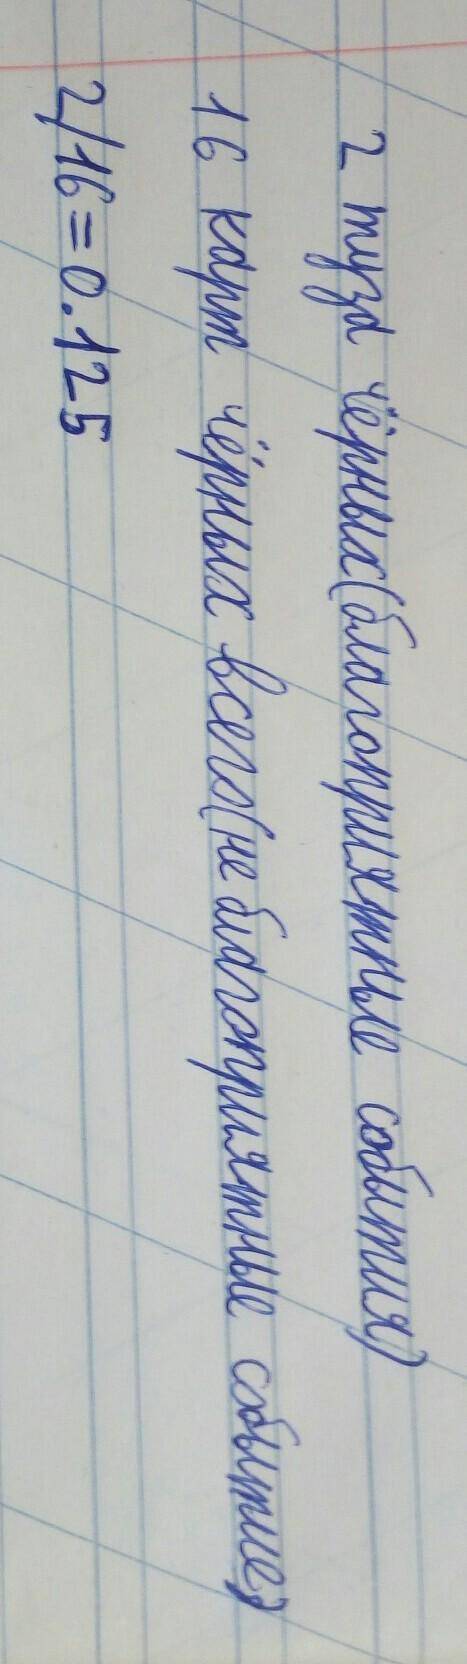 2 туза чёрных (благоприятные события)
16 карт чёрных всего (не благоприятные событие)
2/16=0.125